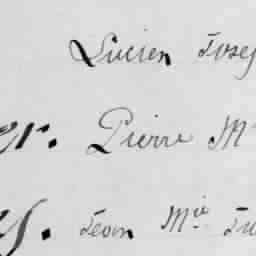 Lucien Josep
er. Pierre M
s. Jean Mie Ju